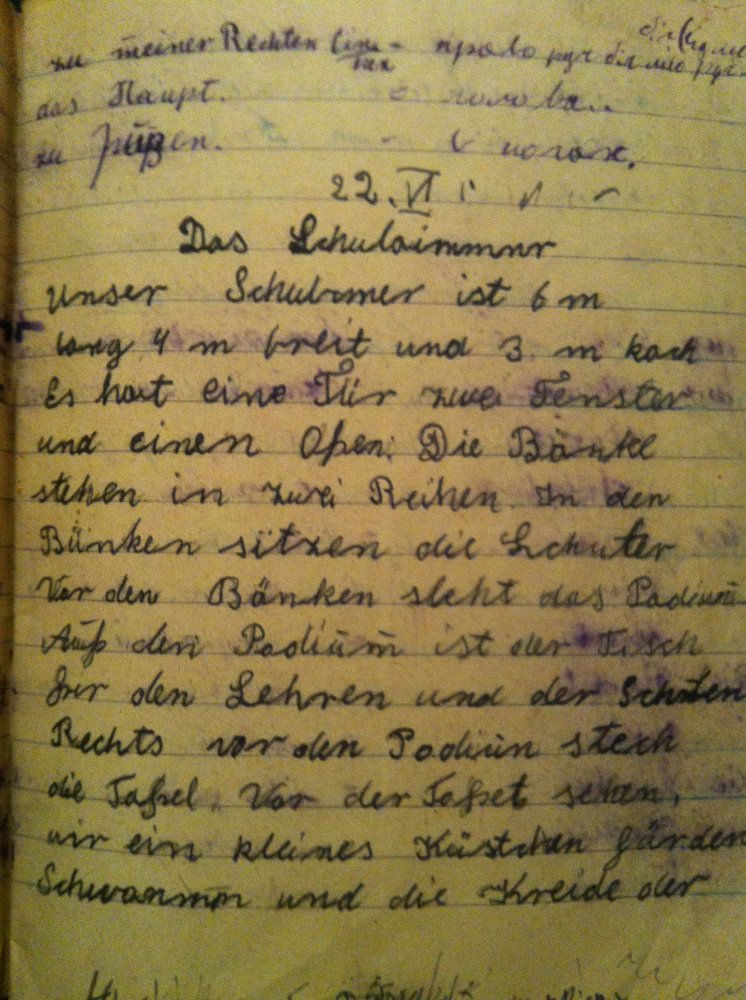 zu meiner Rechten (Lin-ken - право руч
das Haupt. - голова..
zu Füßen. - у ногах.
22. VI
Das Schulzimmer
Unser Schulzmer ist 6 m
lang 4 m breit und 3 m hoch
Es hat eine Tür zwei Fenster
und einen Ofen. Die Bänke
stehen in zwei Reihen In den
Bänken sitzen die Schuler
Vor den Bänken steht das Podium
Auf den Podium ist der Tisch
für den Lehren und der
Rechts vor den Podium stech
die Tafel. Vor der Tafel sehen,
wir ein kleines Kästchen fürden
Schwammn und die Kreide der